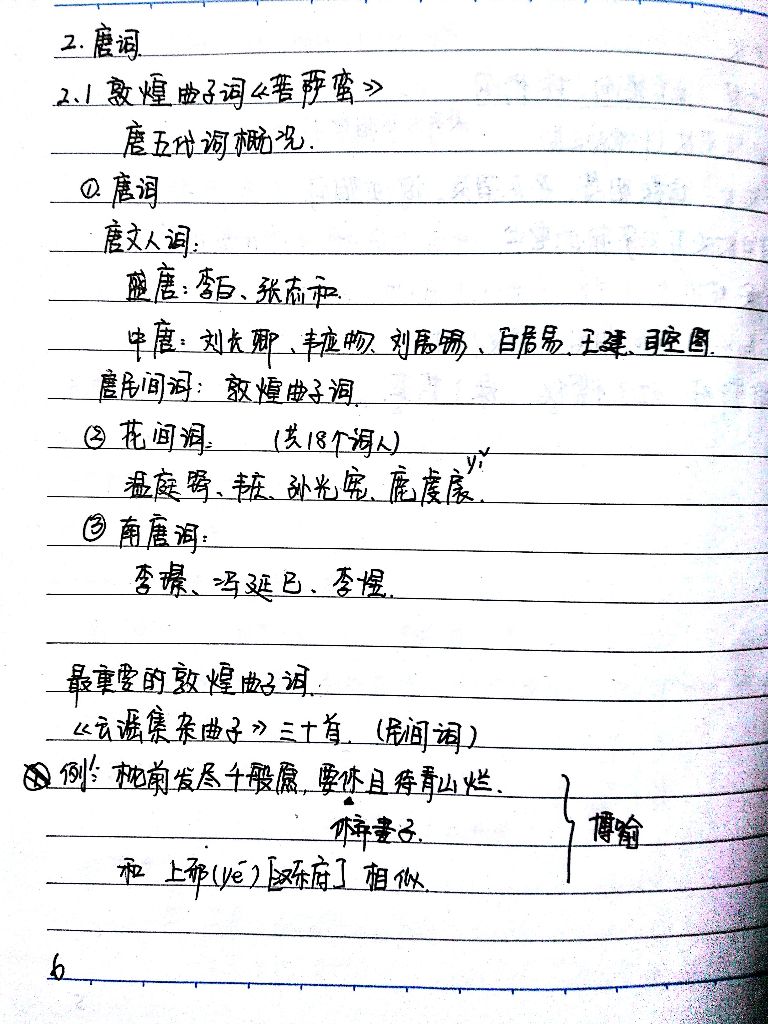 2. 唐词
2.1 敦煌曲子词《菩萨蛮》
唐五代词概况.
①. 唐词
唐文人词:
盛唐: 李白、张志和.
中唐: 刘长卿、韦应物、刘禹锡、白居易、王建、司空图.
唐民间词: 敦煌曲子词.
② 花间词: (共18个词人)
yǐ
温庭筠、韦庄、孙光宪、鹿虔扆.
③ 南唐词:
李璟、冯延巳、李煜.
最重要的敦煌曲子词.
《云谣集杂曲子》三十首. (民间词)
例: 枕前发尽千般愿, 要休且待青山烂.
休弃妻子.
博喻
和 上邪(yé) [汉乐府] 相似.
6